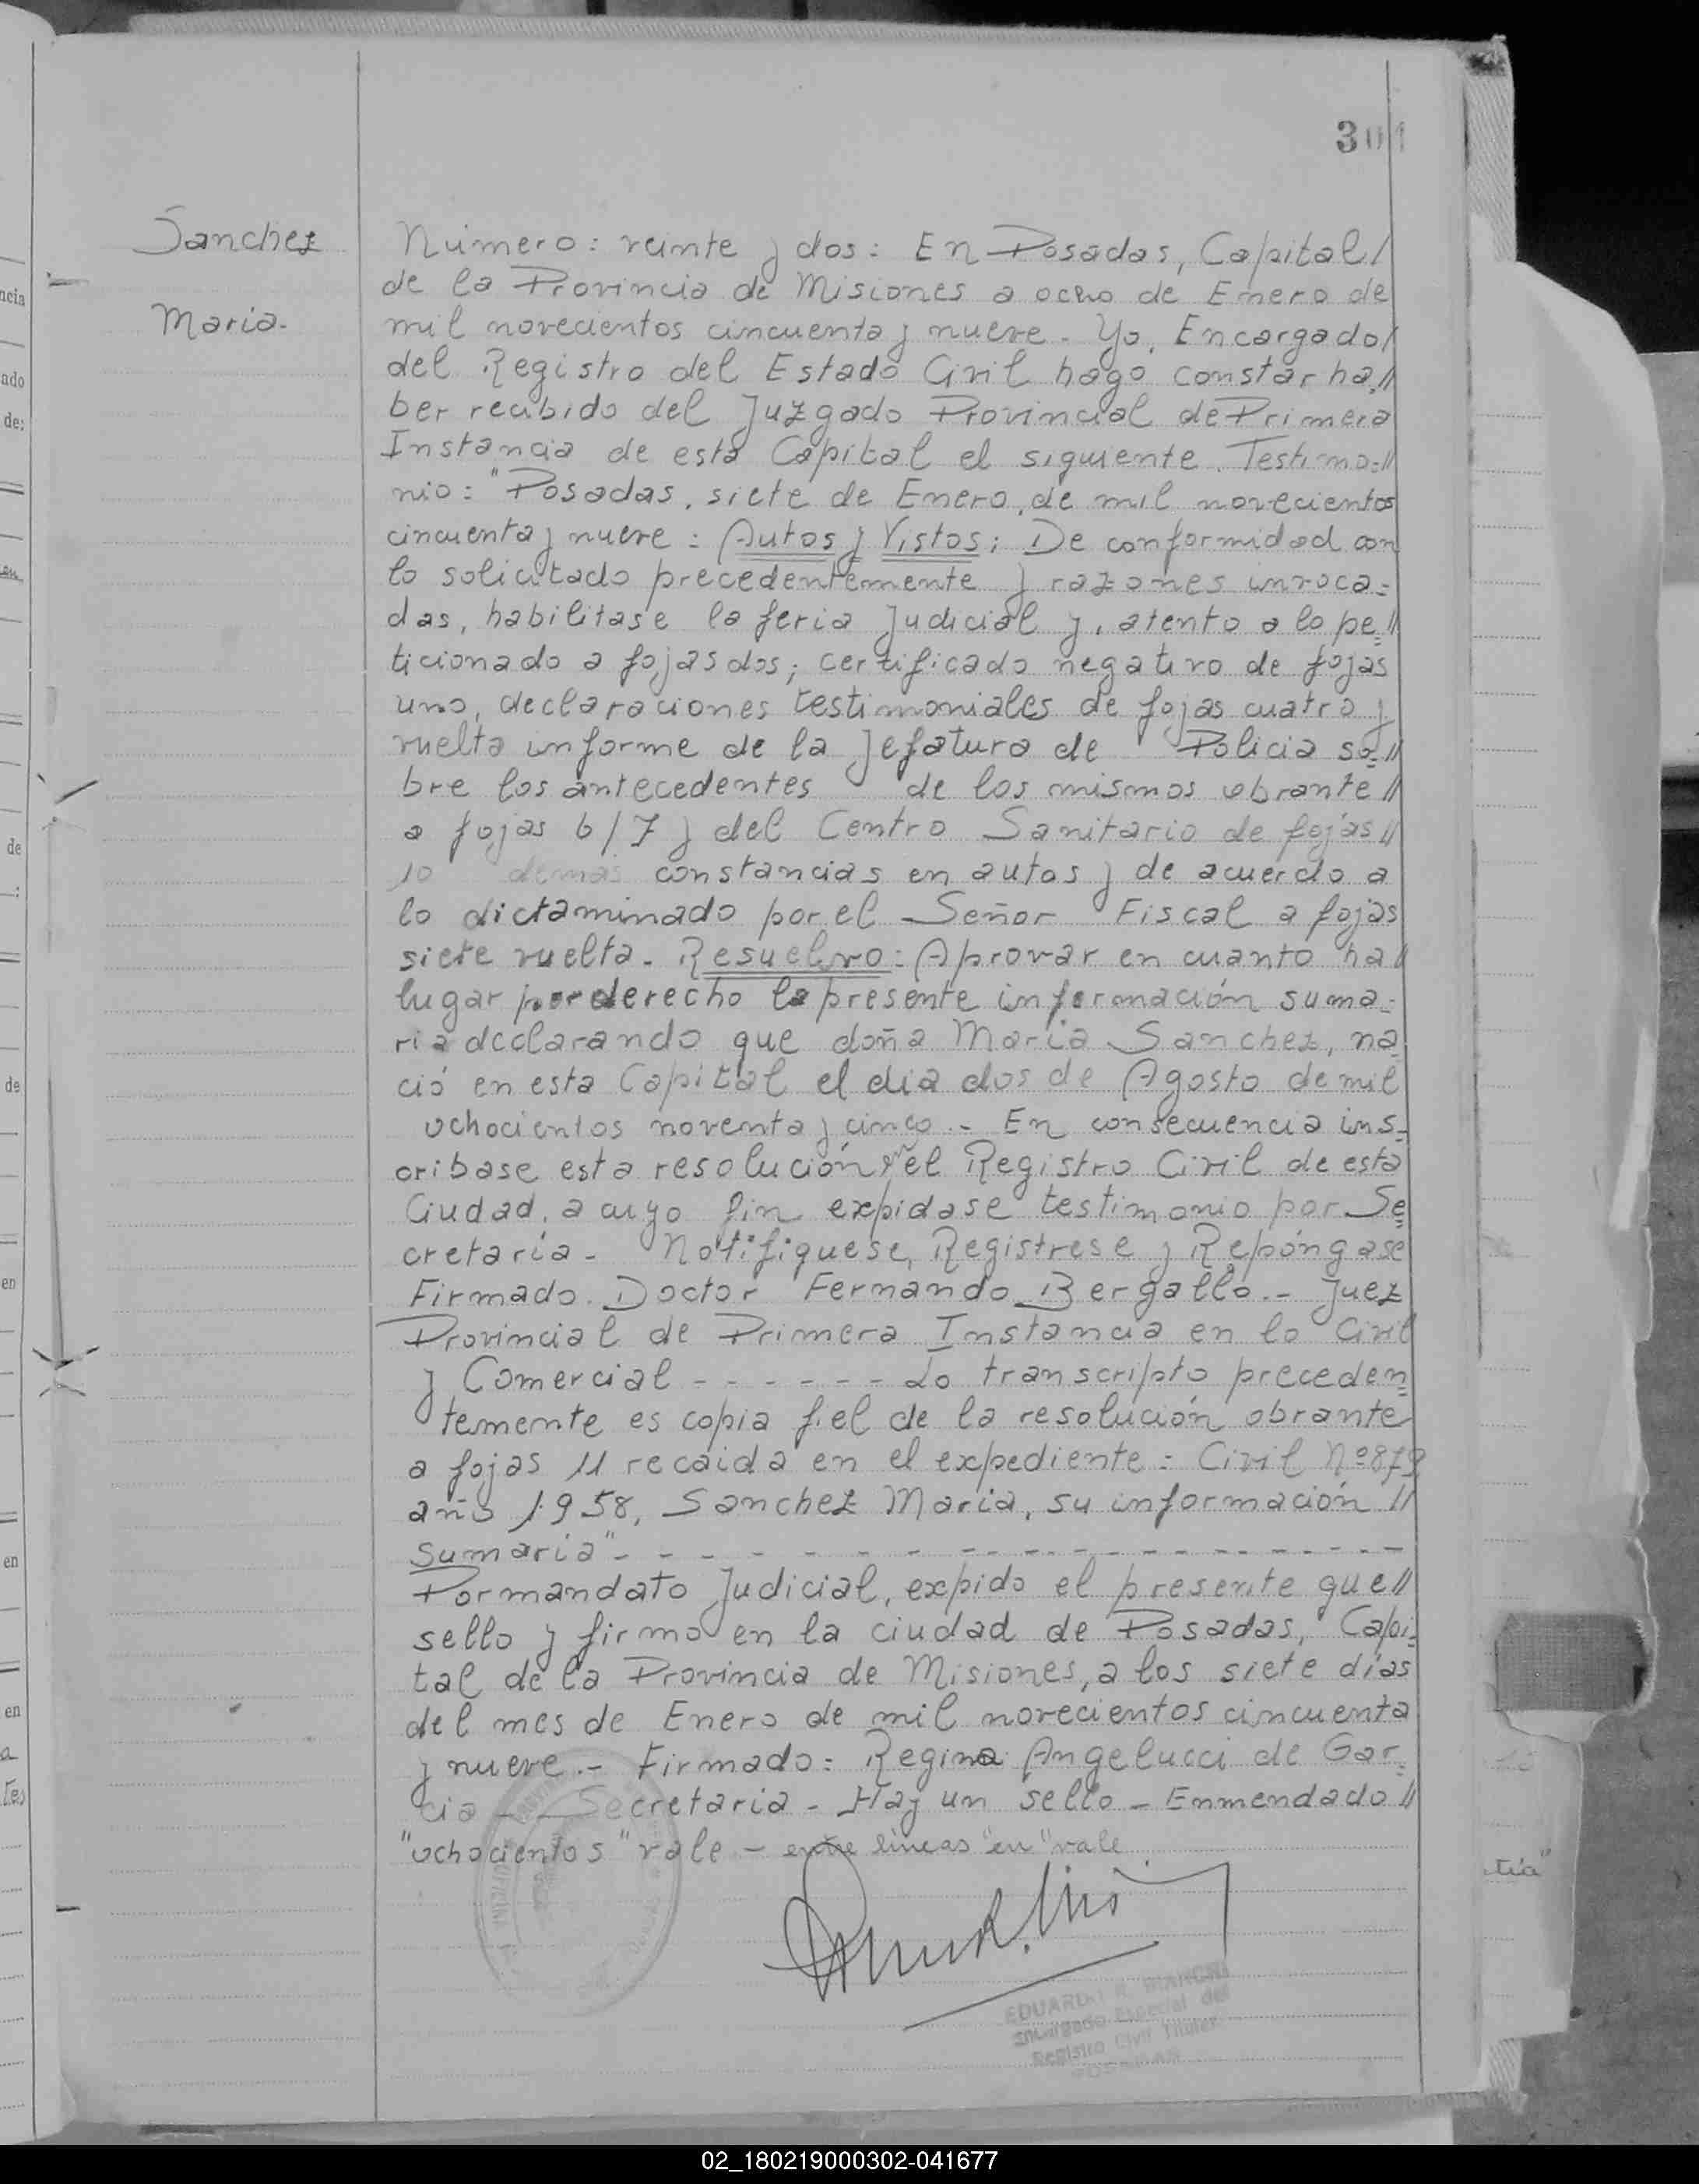 301
Sanchez
Maria.
Número: veinte y dos: En Posadas, Capital/
de la Provincia de Misiones a ocho de Enero de
mil novecientos cincuenta y nueve. Yo, Encargado/
del Registro del Estado Civil hago constar ha//
ber recibido del Juzgado Provincial de Primera
Instancia de esta Capital el siguiente Testimo=//
nio: "Posadas, siete de Enero, de mil novecientos
cincuenta y nueve: Autos y Vistos; De conformidad con
lo solicitado precedentemente y razones invoca=
das, habilitase la feria Judicial y, atento a lo pe=//
ticionado a fojas dos; certificado negativo de fojas
uno, declaraciones testimoniales de fojas cuatro y
vuelta informe de la Jefatura de Policia so=//
bre los antecedentes de los mismos obrante//
a fojas 6/7 y del Centro Sanitario de fojas//
10 demás constancias en autos y de acuerdo a
lo dictaminado por el Señor Fiscal a fojas
siete vuelta. Resuelvo: Aprovar en cuanto ha/
lugar por derecho la presente información suma=
ria declarando que doña Maria Sanchez, na
ció en esta Capital el dia dos de Agosto de mil
ochocientos noventa y cinco.- En consecuencia ins=
cribase esta resolución en el Registro Civil de esta
Ciudad, a cuyo fin expidase testimonio por Se=
cretaria. Notifiquese, Registrese y Repóngase
Firmado. Doctor Fernando Bergallo.- Juez
Provincial de Primera Instancia en lo Civil
y Comercial - - - - - - Lo transcripto preceden=
temente es copia fiel de la resolución obrante
a fojas 11 recaida en el expediente: Civil Nº 879
año 1958, Sanchez Maria, su información //
Sumaria"- - - - - - - - - - - - - - - - - - -
Por mandato Judicial, expido el presente que//
sello y firmo en la ciudad de Posadas, Capi=
tal de la Provincia de Misiones, a los siete días
del mes de Enero de mil novecientos cincuenta
y nueve.- Firmado: Regina Angelucci de Gar=
cia - Secretaria - Hay un sello - Enmendado//
"ochocientos" vale - entre líneas "en" vale
EDUARDO R. BIANCHI
Encargado Especial del
Registro Civil Titular
POSADAS
02_180219000302-041677